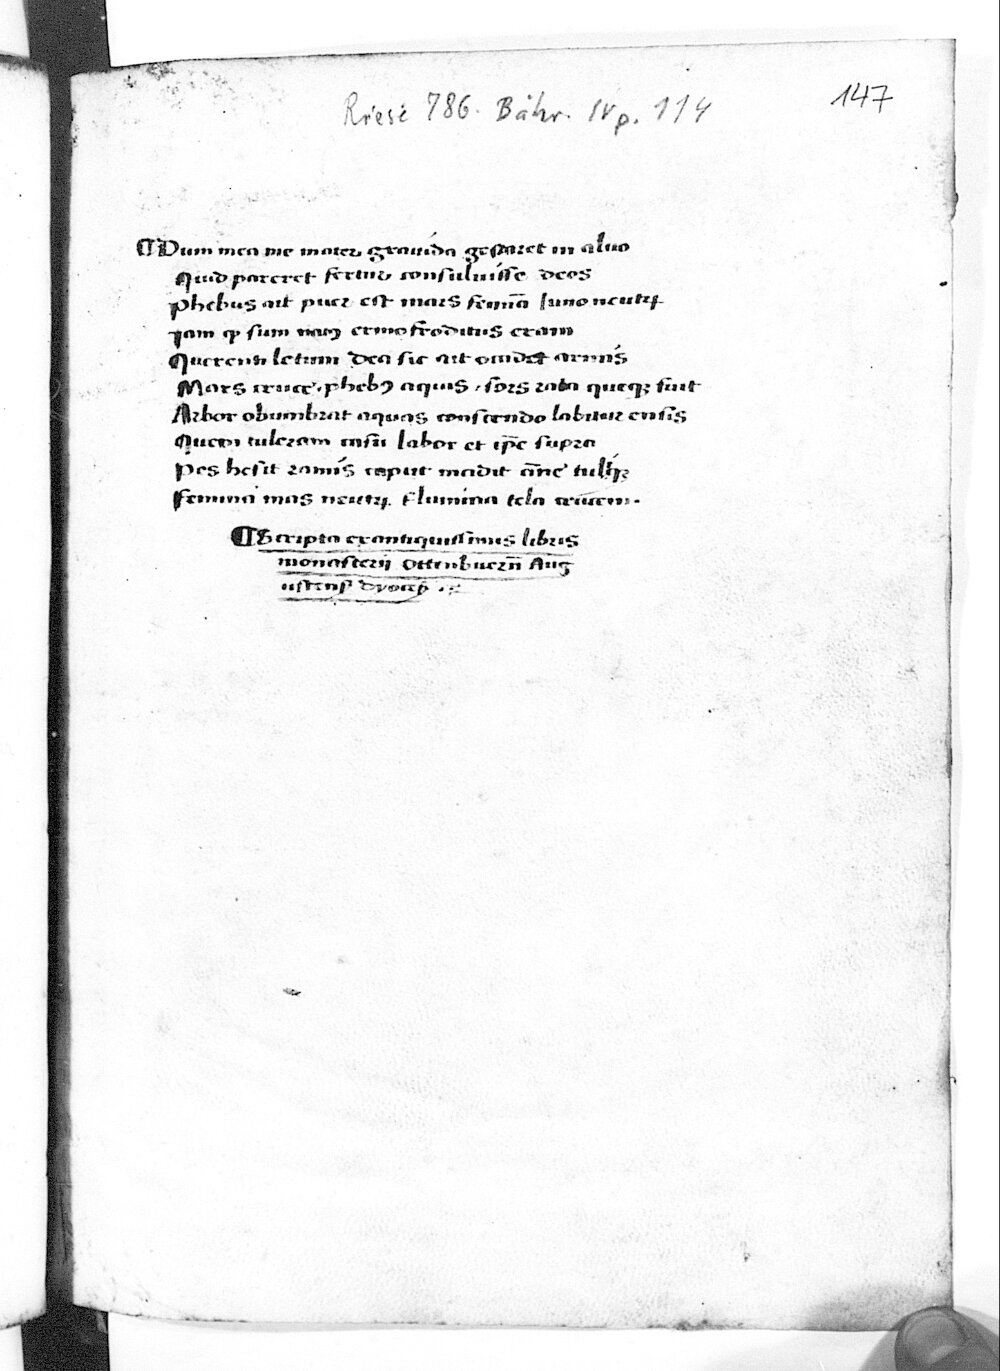 Riese 786. Bähr. IV p. 114
147
¶ Dum mea me mater grauida gestaret in aluo
Quid pareret fertur consuluisse deos
Phebus ait puer est mars femīa Iuno neutrꝫ
Jam qͥ sum natꝫ ermofroditus eram
Querenti letum dea sic ait occidet armis
Mars cruce . phebꝰ aquis . sors rata queqꝫ fuit
Arbor obumbrat aquas conscendo labitur ensis
Quem tuleram casu labor et ip̄e supra
Pes hesit ramis caput incidit āne tuliqꝫ
Femina mas neutrꝫ flumina tela crucem .
¶ Scripta ex antiquissimis libris
monasterij Ottenbuern̄ Aug
ustens̄ dyoces̄